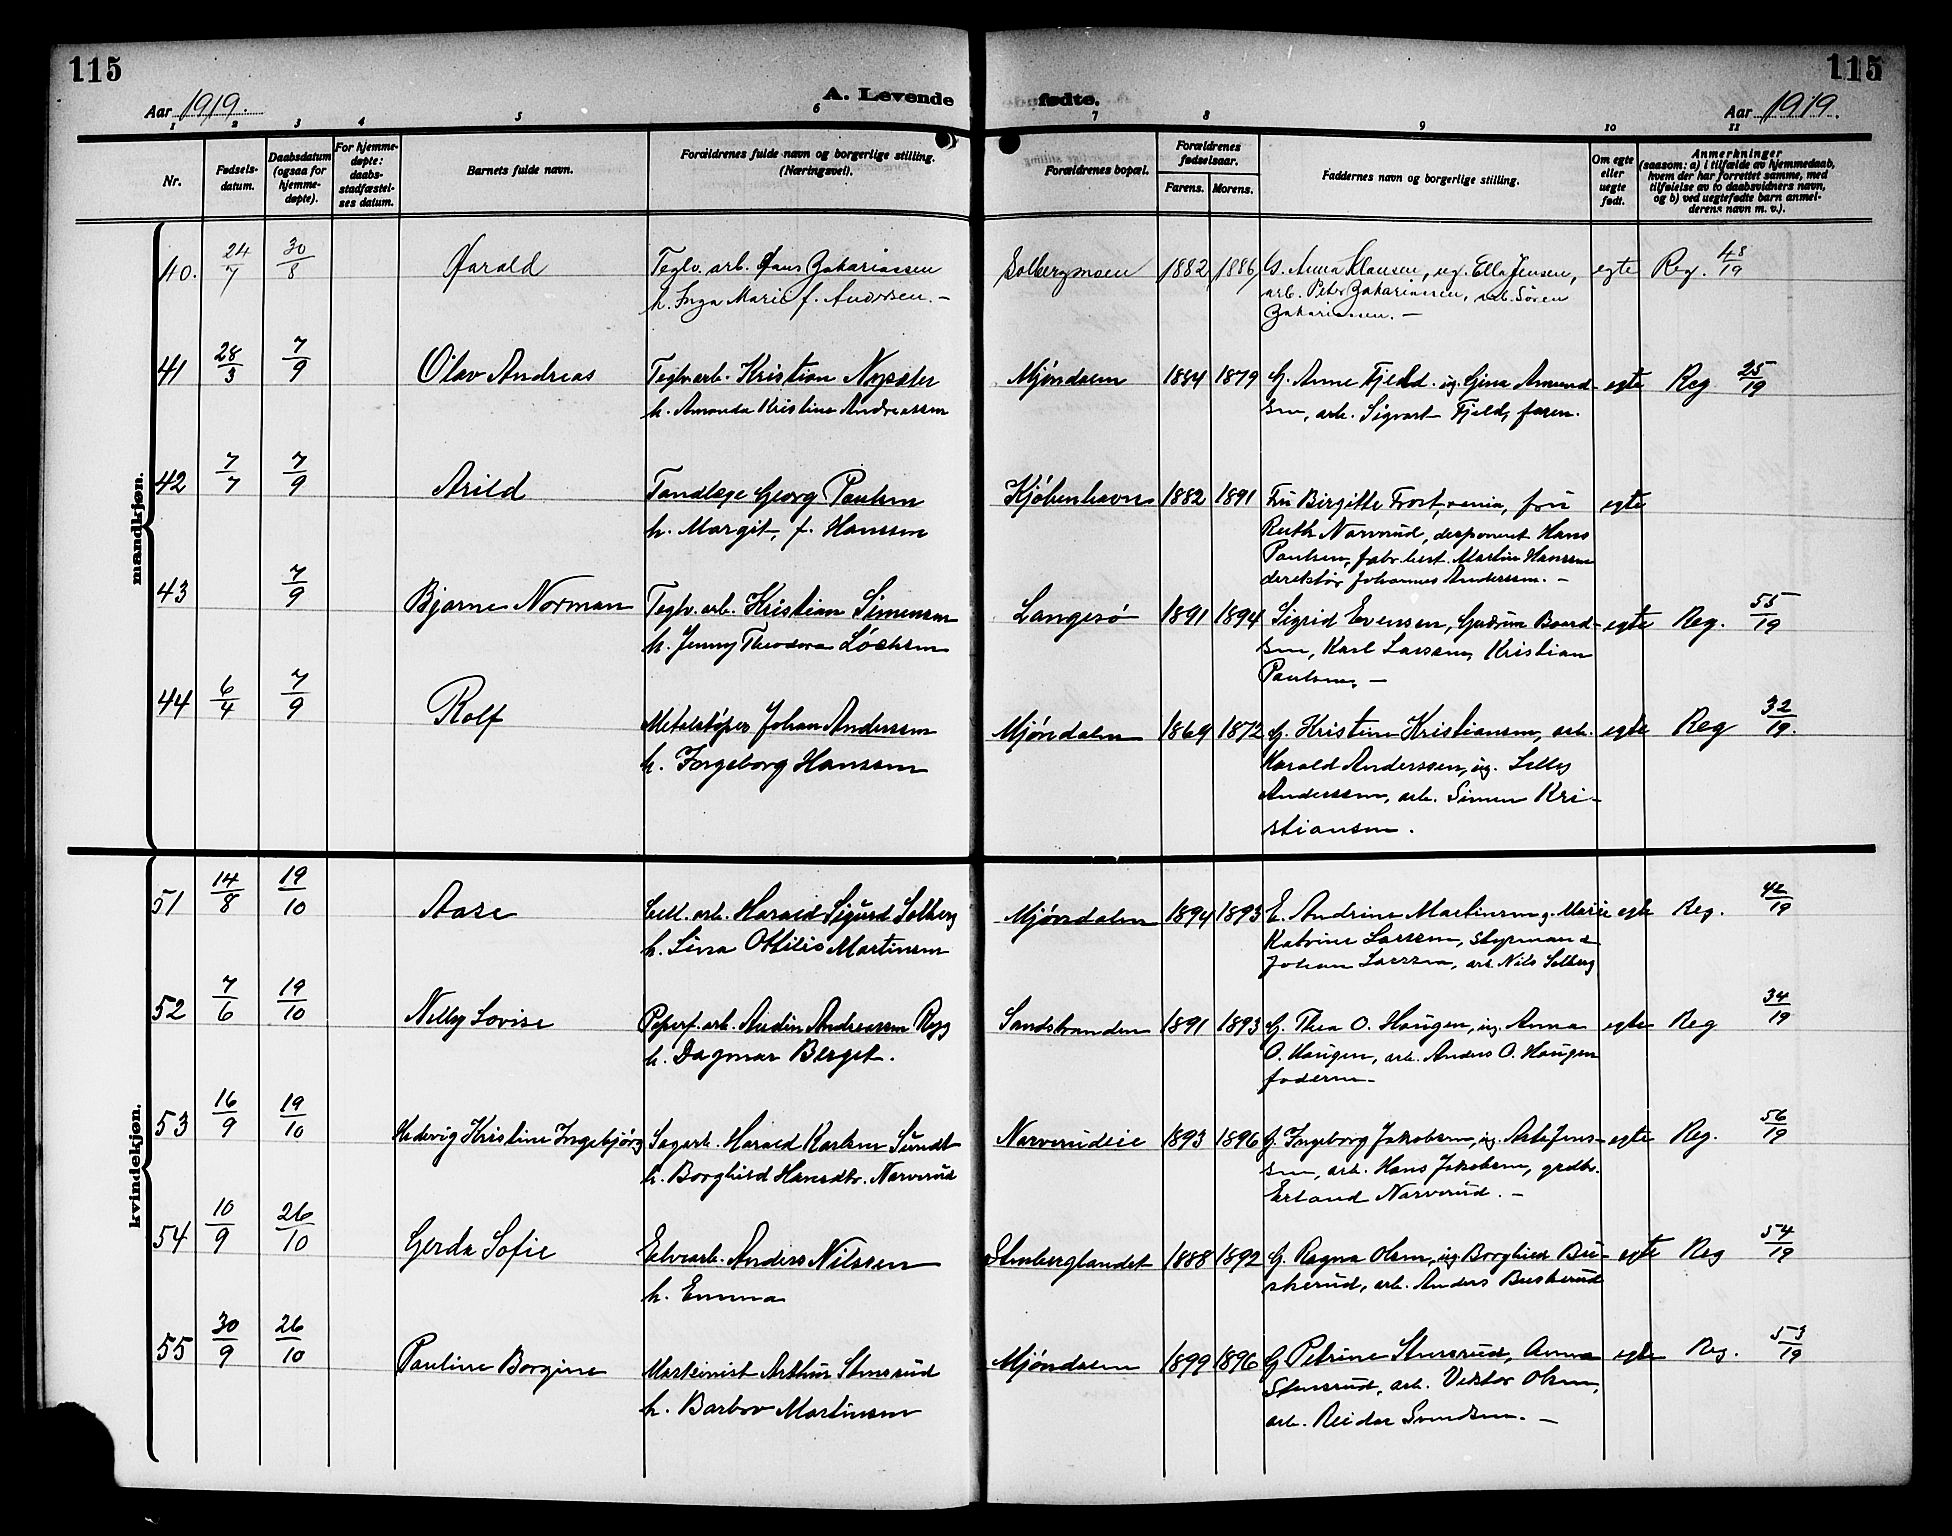 115
115
Aar 1919.
A. Levende
fødte.
Aar 1919.
1 2 3 4 5 6 7 8 9 10 11
Nr.
Fødsels-
datum.
Daabsdatum
(ogsaa for
hjemme-
døpte).
For hjemme-
døpte:
daabs-
stadfæstel-
ses datum.
Barnets fulde navn.
Forældrenes fulde navn og borgerlige stilling.
(Næringsvei).
Forældrenes bopæl.
Forældrenes
fødselsaar.
Farens. Morens.
Faddernes navn og borgerlige stilling.
Om egte
eller
uegte
født.
Anmerkninger
(saasom: a) i tilfælde av hjemmedaab,
hvem der har forrettet samme, med
tilføielse av to daabsvidners navn,
og b) ved uegtefødte barn anmel-
derens navn m. v.).
mandkjøn.
40. 24/7 30/8 Harald Teglv. arb. Hans Zakariassen Solbergmoen 1882 1886 G. Anna Klausen, ug. Ella Jensen, egte Reg. 48/19
h. Inga Marie f. Andersen. –
arb. Peter Zakariassen, arb. Søren
Zakariassen. –
41 28/3 7/9 Olav Andreas Teglv. arb. Kristian Nopster Mjøndalen 1884 1879 G. Anne Fjeld. ug. Gina Amund- egte Reg 25/19
h. Amanda Kristine Andreassen
sen, arb. Sigvart Fjeld, faren.
42 7/7 7/9 Arild Tandlæge Georg Paulsen Kjøbenhavn 1882 1891 Fru Birgitte Frost, fru egte
h. Margit, f. Hanssen
Ruth Narverud, disponent Hans
Paulsen, fabr. best. Martin Hanssen
direktør Johannes Anderssen. –
43 7/9 Bjarne Norman Teglv. arb. Kristian Simensen Langesø 1891 1894 Sigrid Evensen, Gudrun Baard- egte Reg. 55/19
h. Jenny Theodora Løchsen
sen, Karl Larssen, Kristian
Paulsen. –
44 6/4 7/9 Rolf Metalstøper Johan Anderssen Mjøndalen 1869 1872 G. Kristine Kristiansen, arb. egte Reg 32/19.
h. Ingeborg Hanssen
Harald Anderssen, ug. Lilly
Anderssen, arb. Simen Kri-
stiansen.
kvindekjøn.
51 14/8 19/10 Aase Cell. arb. Harald Sigurd Solberg Mjøndalen 1894 1893 E. Andrine Martinsen, g. Marie egte Reg. 42/19
h. Lina Othilie Martinsen
Katrine Larssen, styrmand
Johan Larssen, arb. Nils Solberg
52 7/6 19/10 Nelly Lovise Papirf. arb. Audin Andreassen Rygg Sandstranden 1891 1893 G. Thea O. Haugen, ug. Anna egte Reg 34/19
h. Dagmar Berget.
O. Haugen, arb. Anders O. Haugen
faderen. –
53 16/9 19/10 Hedevig Kristine Ingebjørg Sagarb. Harald Karlsen Sundt Narverudeie 1893 1896 G. Ingeborg Jakobsen, ug. Asta Jens- egte Reg. 56/19
h. Borghild Hansdtr. Narverud
sen, arb. Hans Jakobsen, grdbr.
Erland Narverud. –
54 10/9 26/10 Gerda Sofie Elvearb. Anders Nilssen Stenberglandet 1888 1892 G. Ragna Olsen, ug. Borghild Bu- egte Reg 54/19
h. Emma
skerud, arb. Anders Buskerud
55 30/9 26/10 Pauline Borgine Maskinist Arthur Stensrud Mjøndalen 1899 1896 G Petrine Stensrud, Anna egte Reg. 53/19
h. Barbro Martinsen
Stensrud, arb. Viktor Olsen,
arb. Reidar Svendsen. –